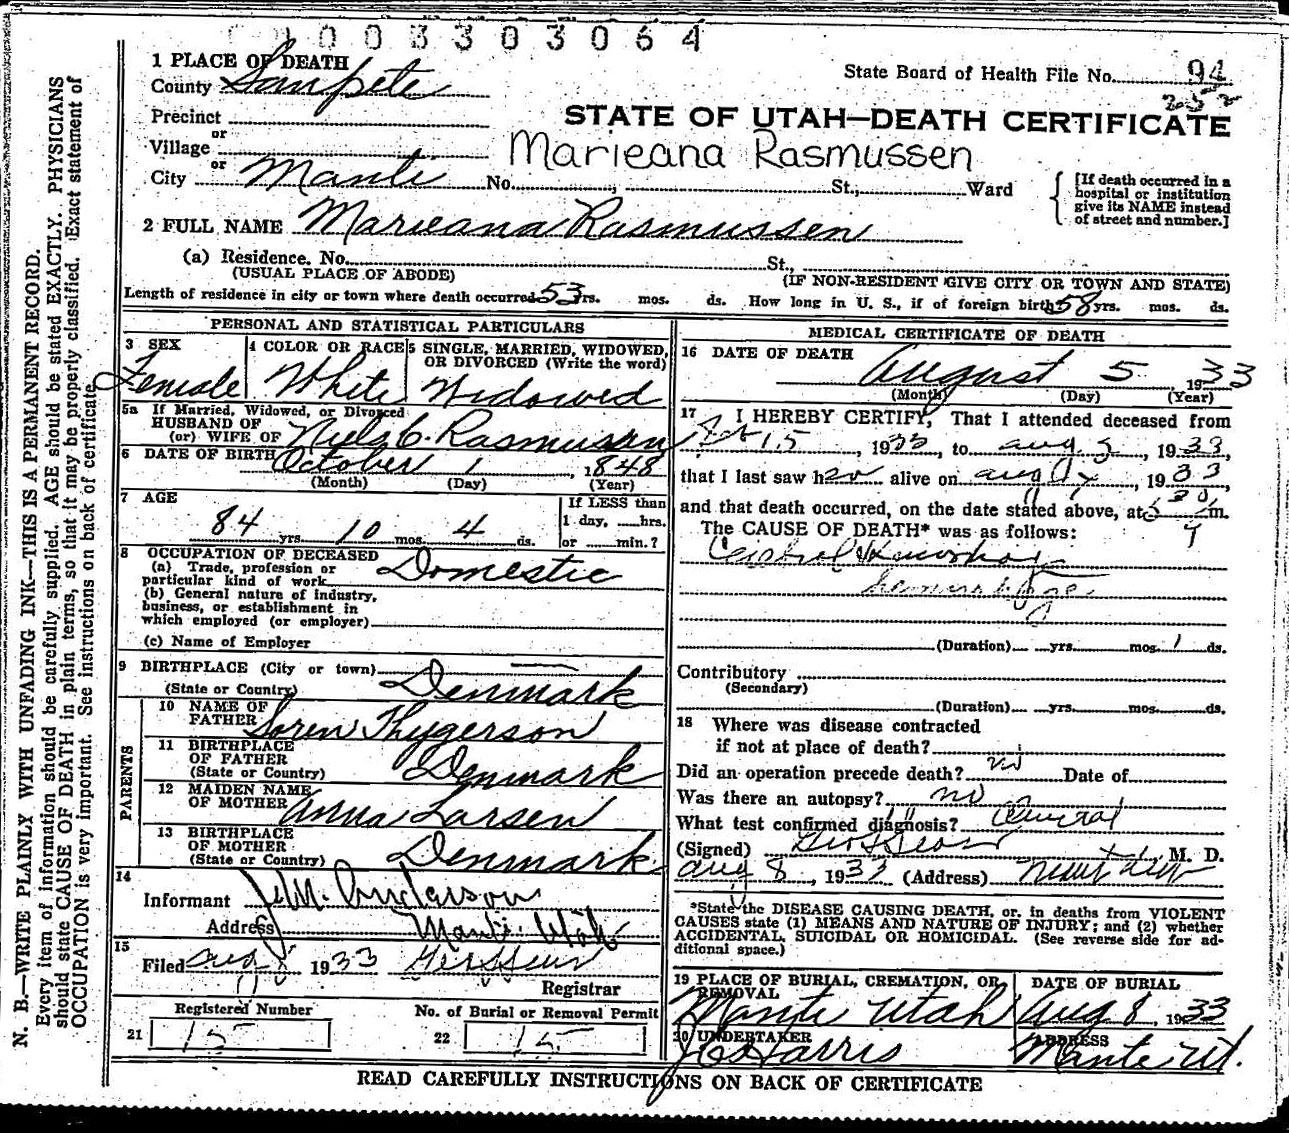 1 0 0 3 3 0 3 0 6 4
1 PLACE OF DEATH
County Sanpete
State Board of Health File No. 94
252
STATE OF UTAH—DEATH CERTIFICATE
Precinct
or
Village
Marieana Rasmussen
or
City Manti No. , St., Ward
[If death occurred in a hospital or institution give its NAME instead of street and number.]
2 FULL NAME Marieana Rasmussen
(a) Residence. No. St.,
(USUAL PLACE OF ABODE) (IF NON-RESIDENT GIVE CITY OR TOWN AND STATE)
Length of residence in city or town where death occurred 53 yrs. mos. ds. How long in U. S., if of foreign birth 58 yrs. mos. ds.
PERSONAL AND STATISTICAL PARTICULARS
3 SEX
Female
4 COLOR OR RACE
White
5 SINGLE, MARRIED, WIDOWED, OR DIVORCED (Write the word)
Widowed
5a If Married, Widowed, or Divorced
HUSBAND OF
(or) WIFE OF Niels C. Rasmussen
6 DATE OF BIRTH October 1 , 1848
(Month) (Day) (Year)
7 AGE
84 yrs 10 mos. 4 ds.
If LESS than
1 day, hrs.
or min.?
8 OCCUPATION OF DECEASED
(a) Trade, profession or
particular kind of work Domestic
(b) General nature of industry,
business, or establishment in
which employed (or employer)
(c) Name of Employer
9 BIRTHPLACE (City or town)
(State or Country) Denmark
PARENTS
10 NAME OF
FATHER Soren Thygerson
11 BIRTHPLACE
OF FATHER
(State or Country) Denmark
12 MAIDEN NAME
OF MOTHER Anna Larsen
13 BIRTHPLACE
OF MOTHER
(State or Country) Denmark
14
Informant J M. Anderson
Address Manti Utah
15
Filed Aug 8 1933
Registrar
Registered Number
21 15
No. of Burial or Removal Permit
22 15
MEDICAL CERTIFICATE OF DEATH
16 DATE OF DEATH
August 5 , 1933
(Month) (Day) (Year)
17 I HEREBY CERTIFY, That I attended deceased from
15 , 1933, to Aug. , 1933,
that I last saw her alive on Aug , 1933
and that death occurred, on the date stated above, at m.
The CAUSE OF DEATH* was as follows:
Cerebral Hemorrhage
(Duration) yrs. mos. 1 ds.
Contributory
(Secondary)
(Duration) yrs. mos. ds.
18 Where was disease contracted
if not at place of death?
Did an operation precede death? no Date of
Was there an autopsy? no
What test confirmed diagnosis?
(Signed) , M. D.
Aug 8 , 1933 (Address)
*State the DISEASE CAUSING DEATH, or, in deaths from VIOLENT
CAUSES state (1) MEANS AND NATURE OF INJURY; and (2) whether
ACCIDENTAL, SUICIDAL OR HOMICIDAL. (See reverse side for ad-
ditional space.)
19 PLACE OF BURIAL, CREMATION, OR
REMOVAL
Manti Utah
DATE OF BURIAL
Aug 8 , 1933
20 UNDERTAKER
J C Harris
ADDRESS
Manti Ut.
READ CAREFULLY INSTRUCTIONS ON BACK OF CERTIFICATE
N. B.—WRITE PLAINLY WITH UNFADING INK—THIS IS A PERMANENT RECORD.
Every item of information should be carefully supplied. AGE should be stated EXACTLY. PHYSICIANS
should state CAUSE OF DEATH in plain terms, so that it may be properly classified. Exact statement of
OCCUPATION is very important. See instructions on back of certificate.